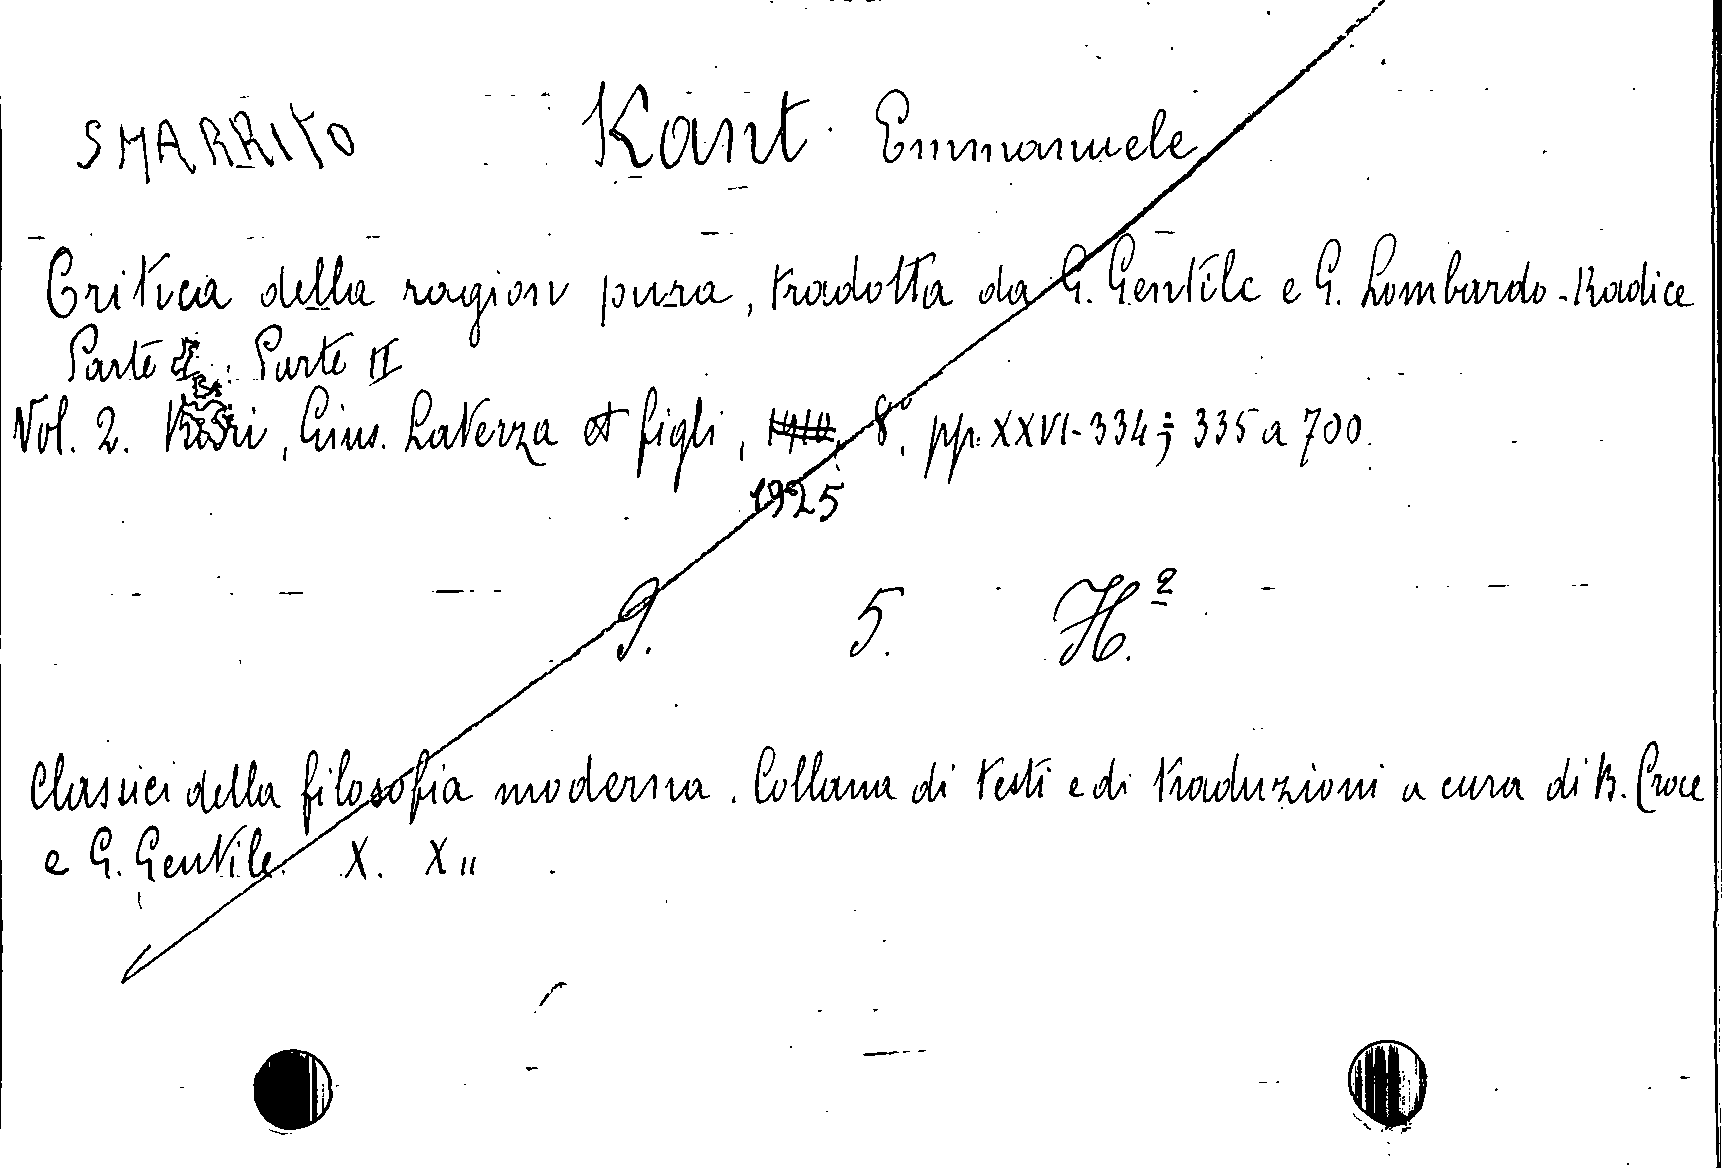 SMARRITO Kant Emmanuele
Critica della ragion pura, tradotta da G. Gentile e G. Lombardo-Radice
Parte I. Parte II
Vol. 2. Bari, Gius. Laterza et figli, 1910, 8°. pp. XXVI-334; 335 a 700.
1925
9. 5. H.²
Classici della filosofia moderna. Collana di testi e di traduzioni a cura di B. Croce
e G. Gentile. X. X"